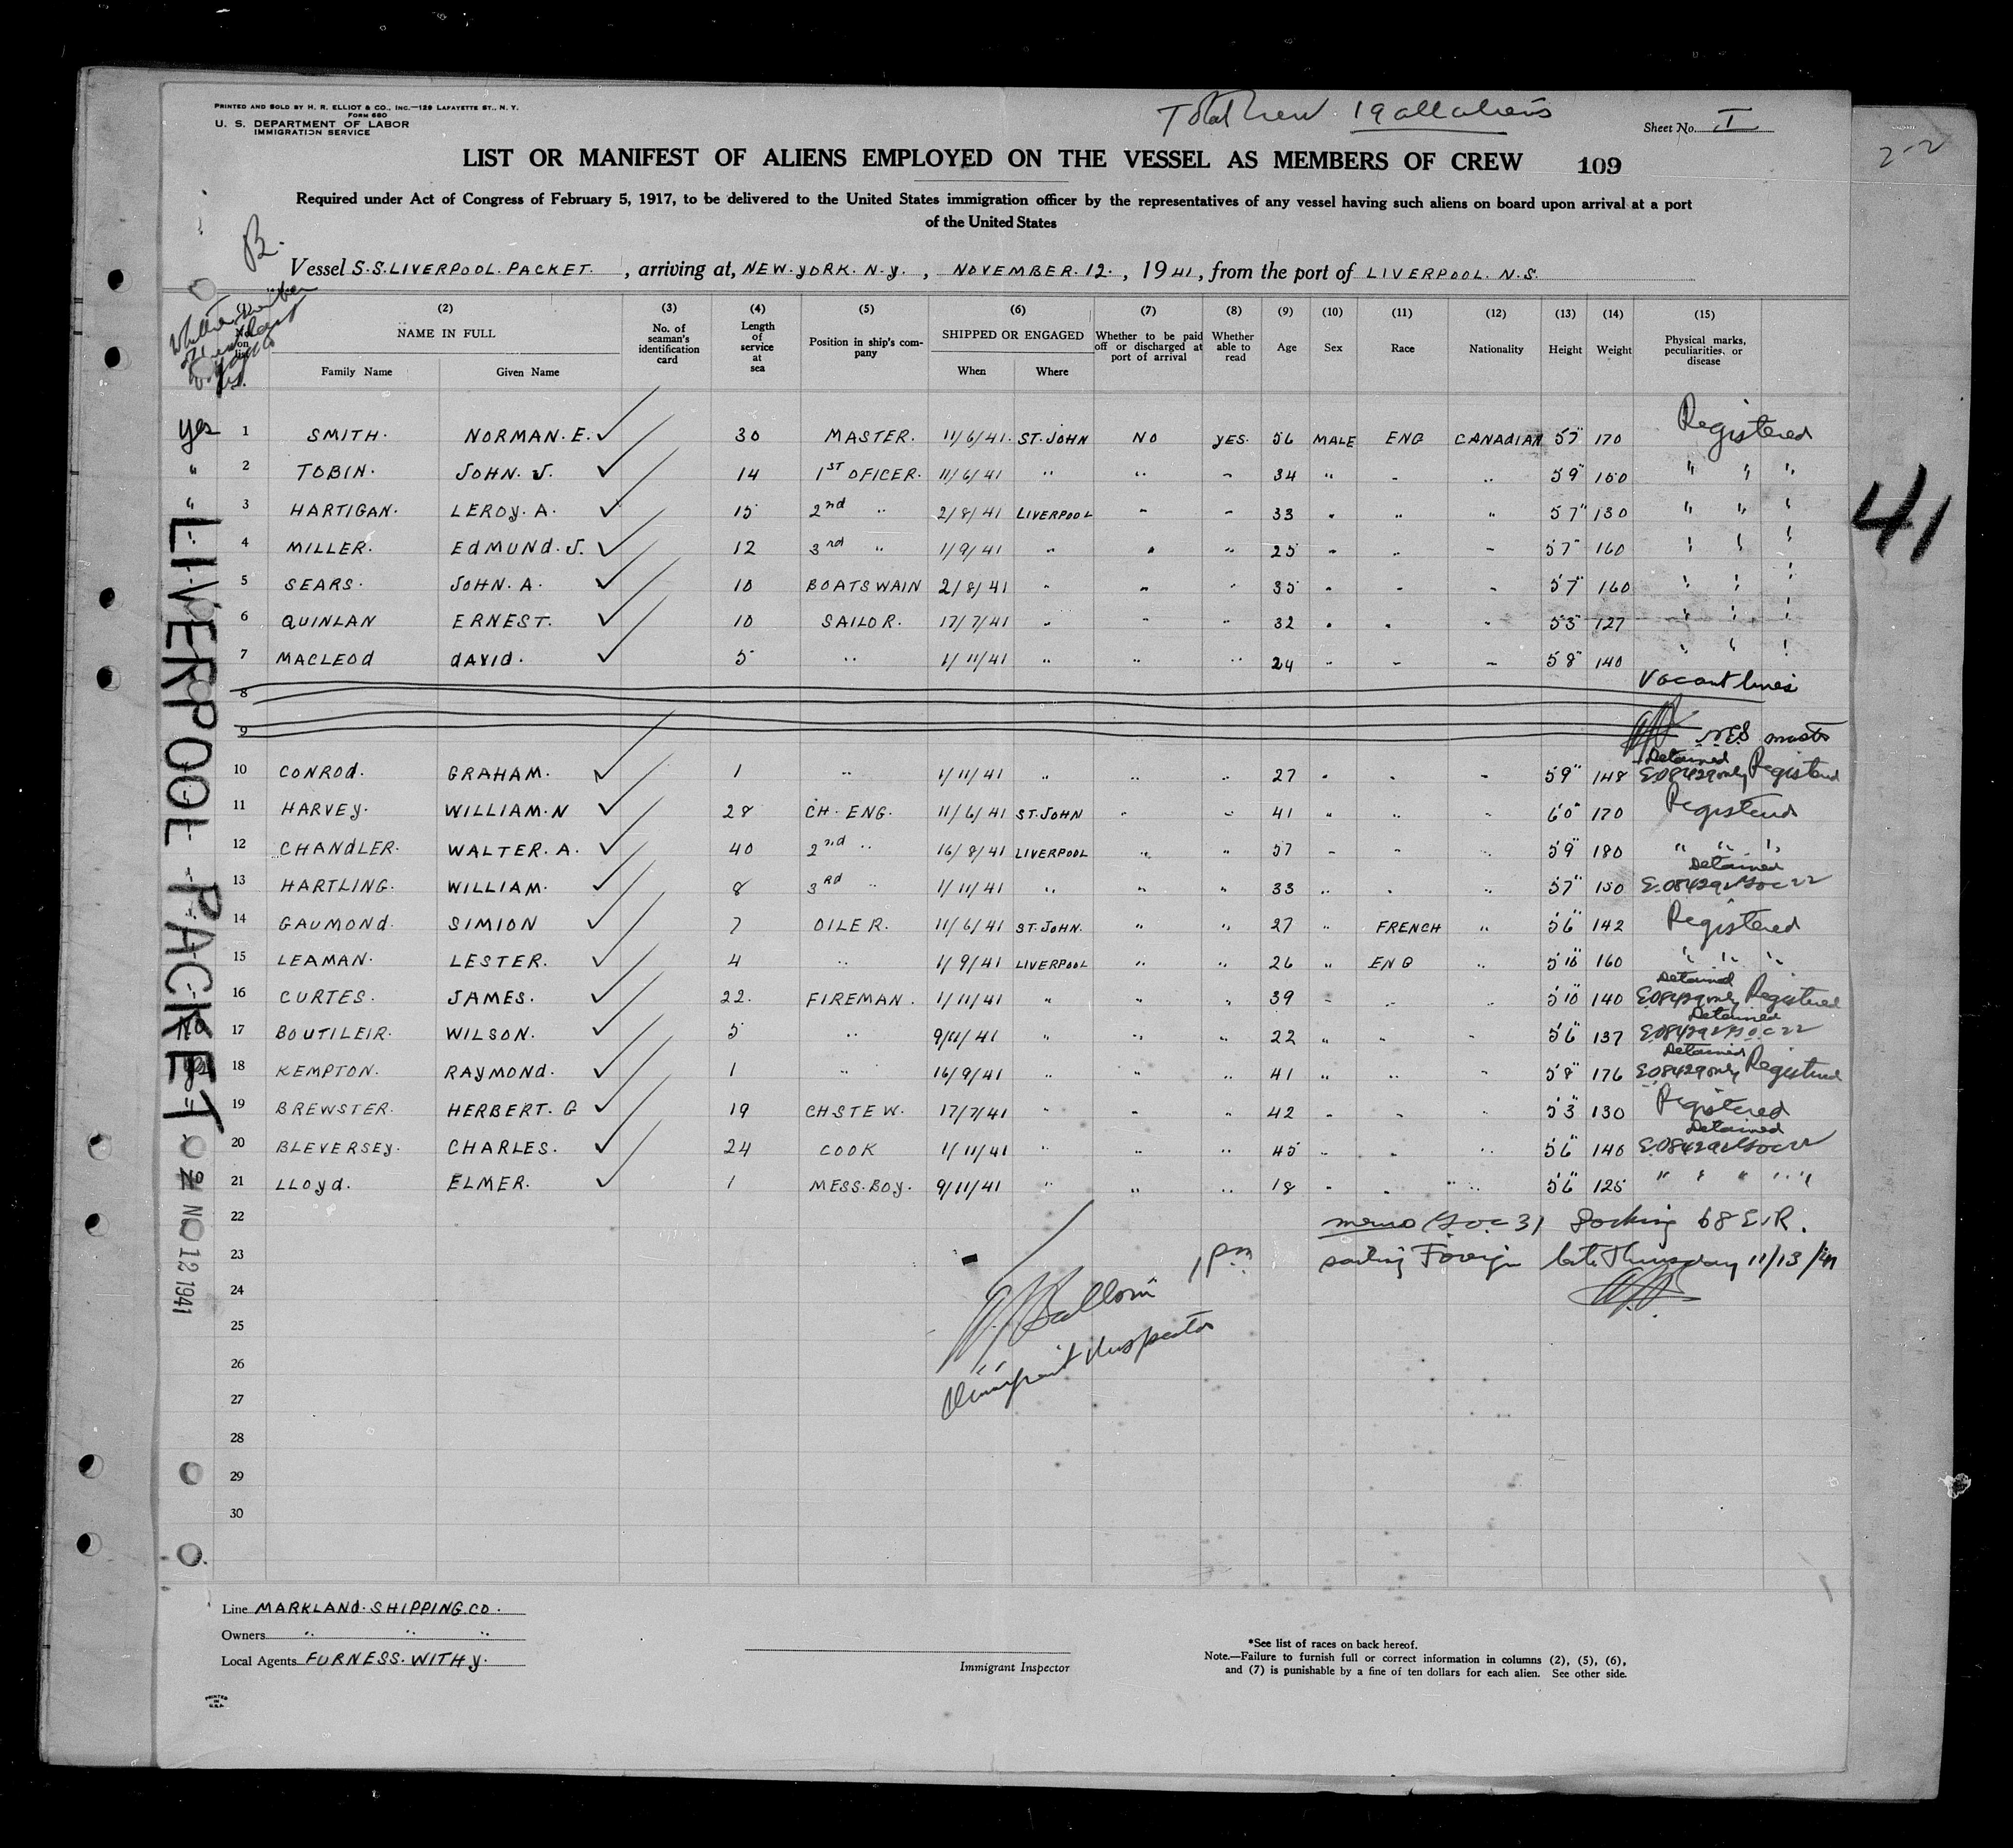 PRINTED AND SOLD BY H. R. ELLIOT & CO., INC.—129 LAFAYETTE ST., N. Y.
FORM 680
U. S. DEPARTMENT OF LABOR
IMMIGRATION SERVICE
Total Crew 19 all aliens
Sheet No. I
2-2
LIST OR MANIFEST OF ALIENS EMPLOYED ON THE VESSEL AS MEMBERS OF CREW 109
Required under Act of Congress of February 5, 1917, to be delivered to the United States immigration officer by the representatives of any vessel having such aliens on board upon arrival at a port
of the United States
B.
Vessel S.S. LIVERPOOL. PACKET. , arriving at, NEW. YORK. N. Y. , NOVEMBER. 12. , 1941, from the port of LIVERPOOL. N.S.
(1) (2) (3) (4) (5) (6) (7) (8) (9) (10) (11) (12) (13) (14) (15)
NAME IN FULL No. of seaman's identification card Length of service at sea Position in ship's company SHIPPED OR ENGAGED Whether to be paid off or discharged at port of arrival Whether able to read Age Sex Race Nationality Height Weight Physical marks, peculiarities, or disease
Family Name Given Name When Where
yes 1 SMITH. NORMAN. E. ✓ 30 MASTER. 11/6/41. ST. JOHN NO YES. 56 MALE ENG CANADIAN 5 7" 170 Registered
" 2 TOBIN. JOHN. J. ✓ 14 1ST OFICER. 11/6/41 " " " 34 " " " 5 9" 150 " " "
" 3 HARTIGAN. LEROY. A. ✓ 15 2nd " 2/8/41 LIVERPOOL " " 33 " " " 5 7" 130 " " "
4 MILLER. EDMUND. J. ✓ 12 3rd " 1/9/41 " " " 25 " " " 5 7" 160 " " "
5 SEARS. JOHN. A. ✓ 10 BOATSWAIN 2/8/41 " " " 35 " " " 5 7" 160 " " "
6 QUINLAN ERNEST. ✓ 10 SAILOR. 17/7/41 " " " 32 " " " 5 5" 127 " " "
7 MACLEOD DAVID. ✓ 5 " 1/11/41 " " " 24 " " " 5 8" 140 " " "
8 Vacant lines
9
10 CONROD. GRAHAM. ✓ 1 " 1/11/41 " " " 27 " " " 5 9" 148 Detained E.O. 8429 only Registered
11 HARVEY. WILLIAM. N ✓ 28 CH. ENG. 11/6/41 ST. JOHN " " 41 " " " 6 0" 170 Registered
12 CHANDLER. WALTER. A. ✓ 40 2nd " 16/8/41 LIVERPOOL " " 57 " " " 5 9" 180 " " "
13 HARTLING. WILLIAM. ✓ 8 3RD " 1/11/41 " " " 33 " " " 5 7" 150 Detained E.O. 8429
14 GAUMOND. SIMION ✓ 7 OILER. 11/6/41 ST. JOHN. " " 27 " FRENCH " 5 6" 142 Registered
15 LEAMAN. LESTER. ✓ 4 " 1/9/41 LIVERPOOL " " 26 " ENG " 5 10" 160 " " "
16 CURTES. JAMES. ✓ 22. FIREMAN. 1/11/41 " " " 39 " " " 5 10" 140 Detained E.O. 8429 only Registered
No 17 BOUTILEIR. WILSON. ✓ 5 " 9/11/41 " " " 22 " " " 5 6" 137 Detained E.O. 8429
yes 18 KEMPTON. RAYMOND. ✓ 1 " 16/9/41 " " " 41 " " " 5 8" 176 Detained E.O. 8429 only Registered
" 19 BREWSTER. HERBERT. G ✓ 19 CHSTEW. 17/7/41 " " " 42 " " " 5 3" 130 Registered
20 BLEVERSEY. CHARLES. ✓ 24 COOK 1/11/41 " " " 45 " " " 5 6" 140 Detained E.O. 8429
No 21 LLOYD. ELMER. ✓ 1 MESS. BOY. 9/11/41 " " " 18 " " " 5 6" 125 " " " " "
22 memo Docking 68 E.R.
23 1 pm sailing Foreign late Thursday 11/13/41
24
25
26 Immigrant Inspector
27
28
29
30
LIVERPOOL PACKET
NO 12 1941
41
Line MARKLAND. SHIPPING. CO.
Owners " " "
Local Agents FURNESS. WITHY.
Immigrant Inspector
*See list of races on back hereof.
Note.—Failure to furnish full or correct information in columns (2), (5), (6),
and (7) is punishable by a fine of ten dollars for each alien. See other side.
PRINTED
IN
U.S.A.